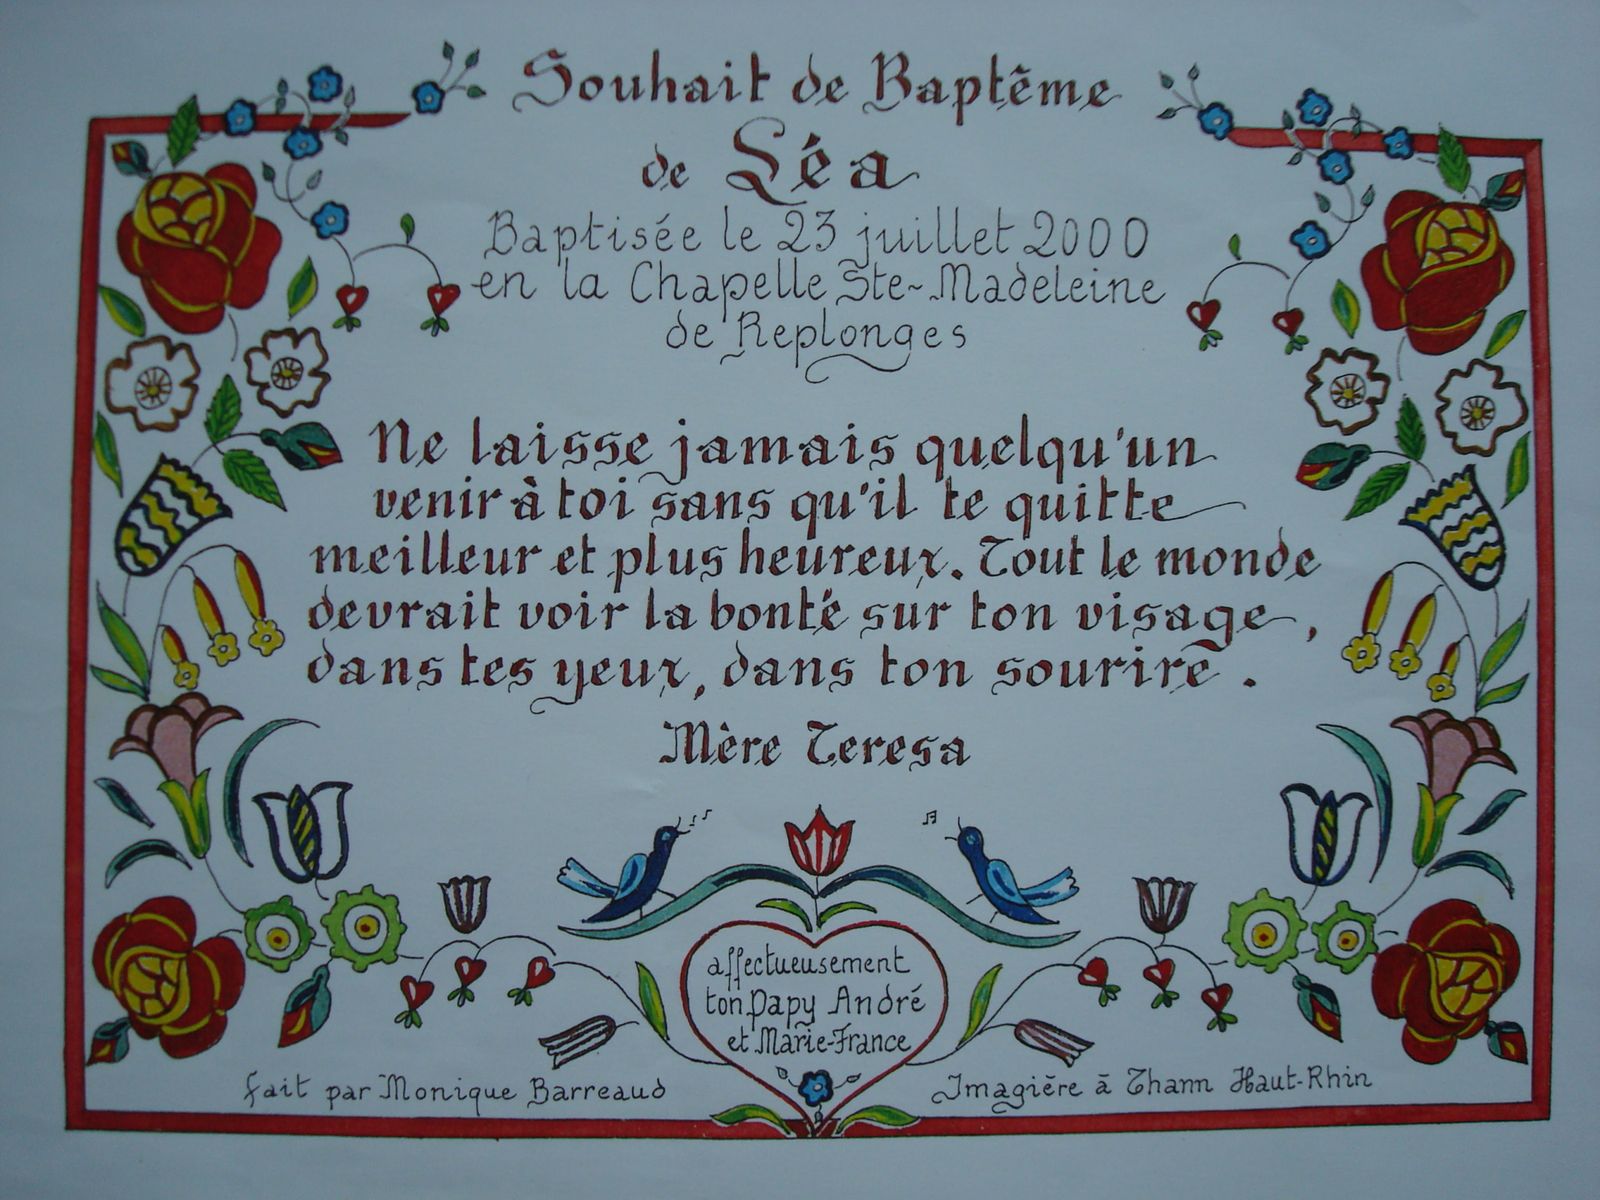 Souhait de Baptême
de Léa
Baptisée le 23 juillet 2000
en la Chapelle Ste-Madeleine
de Replonges
Ne laisse jamais quelqu'un
venir à toi sans qu'il te quitte
meilleur et plus heureux. Tout le monde
devrait voir la bonté sur ton visage,
dans tes yeux, dans ton sourire.
Mère Teresa
affectueusement
ton Papy André
et Marie-France
fait par Monique Barreaud
Imagière à Thann Haut-Rhin